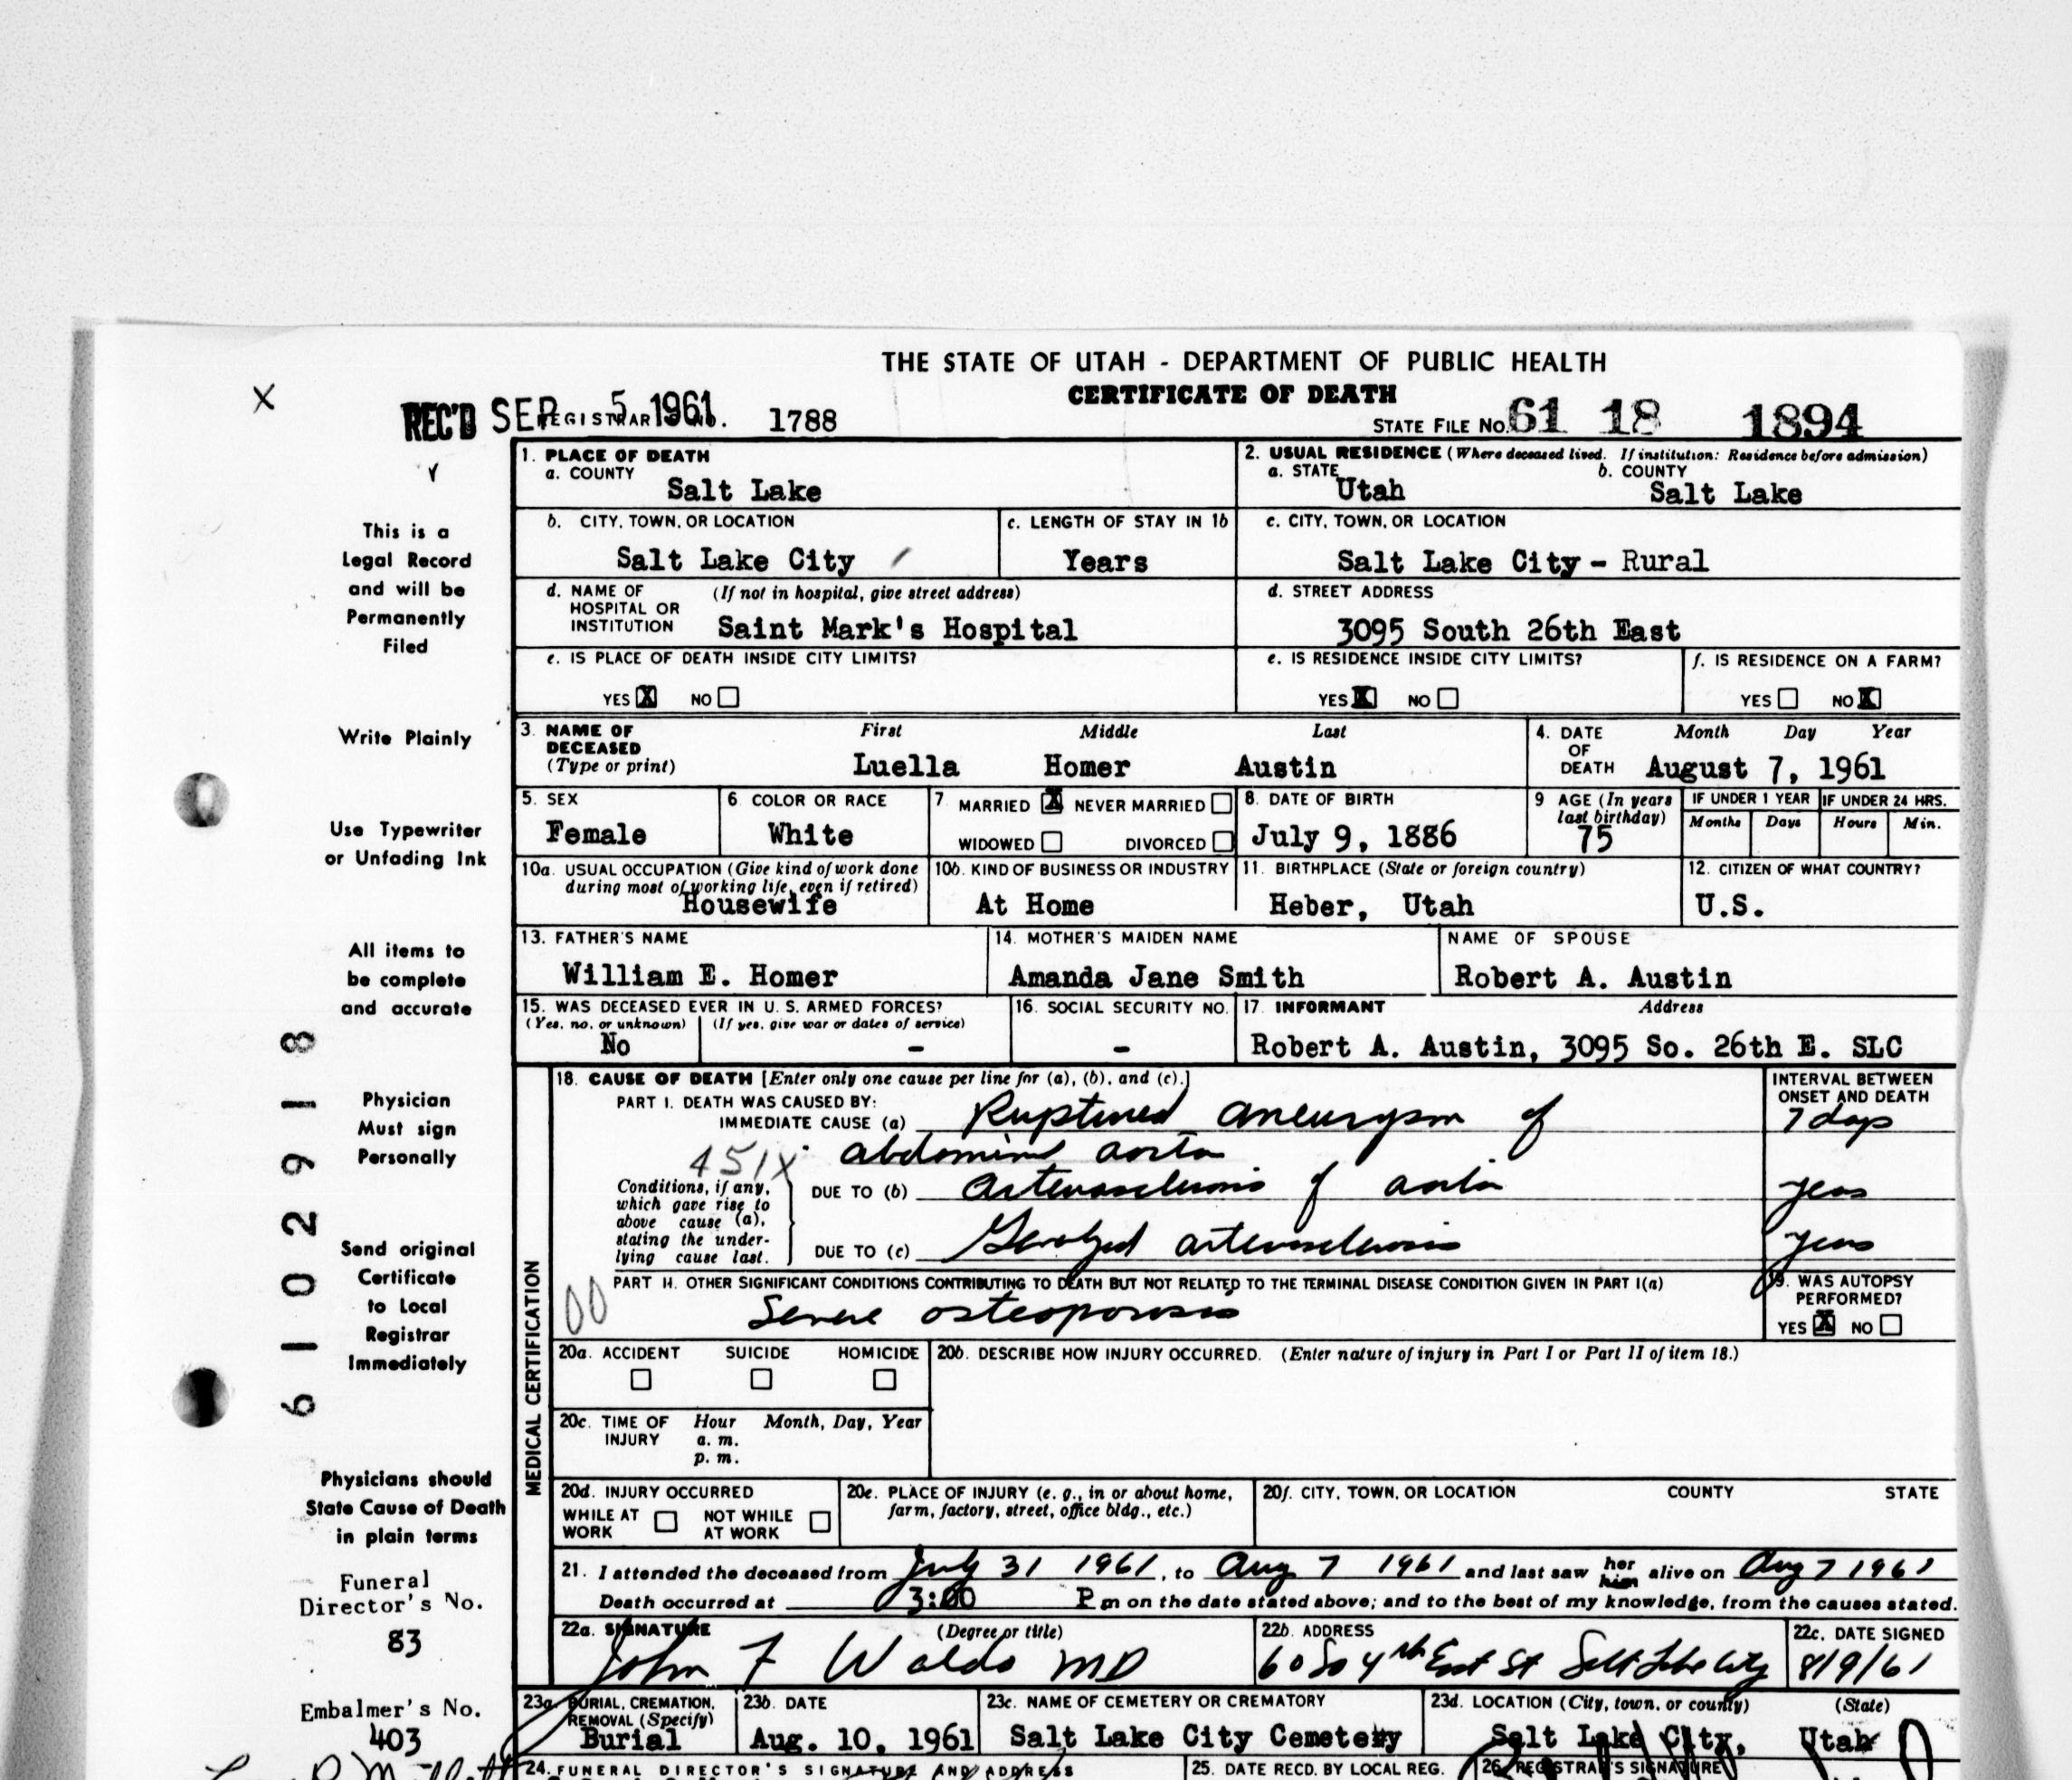 THE STATE OF UTAH - DEPARTMENT OF PUBLIC HEALTH
CERTIFICATE OF DEATH
X
REC'D SEP 5 1961
REGISTRAR 1788
STATE FILE NO. 61 18 1894
1. PLACE OF DEATH
a. COUNTY
Salt Lake
2. USUAL RESIDENCE (Where deceased lived. If institution: Residence before admission)
a. STATE b. COUNTY
Utah Salt Lake
b. CITY, TOWN, OR LOCATION
Salt Lake City
c. LENGTH OF STAY IN 1b
Years
c. CITY, TOWN, OR LOCATION
Salt Lake City - Rural
d. NAME OF HOSPITAL OR INSTITUTION (If not in hospital, give street address)
Saint Mark's Hospital
d. STREET ADDRESS
3095 South 26th East
e. IS PLACE OF DEATH INSIDE CITY LIMITS?
YES X NO
e. IS RESIDENCE INSIDE CITY LIMITS?
YES X NO
f. IS RESIDENCE ON A FARM?
YES NO X
3. NAME OF DECEASED (Type or print)
First Middle Last
Luella Homer Austin
4. DATE OF DEATH Month Day Year
August 7, 1961
5. SEX
Female
6. COLOR OR RACE
White
7. MARRIED X NEVER MARRIED
WIDOWED DIVORCED
8. DATE OF BIRTH
July 9, 1886
9 AGE (In years last birthday)
75
IF UNDER 1 YEAR IF UNDER 24 HRS.
Months Days Hours Min.
10a. USUAL OCCUPATION (Give kind of work done during most of working life, even if retired)
Housewife
10b. KIND OF BUSINESS OR INDUSTRY
At Home
11. BIRTHPLACE (State or foreign country)
Heber, Utah
12. CITIZEN OF WHAT COUNTRY?
U.S.
13. FATHER'S NAME
William E. Homer
14. MOTHER'S MAIDEN NAME
Amanda Jane Smith
NAME OF SPOUSE
Robert A. Austin
15. WAS DECEASED EVER IN U. S. ARMED FORCES?
(Yes, no, or unknown) (If yes, give war or dates of service)
No -
16. SOCIAL SECURITY NO.
-
17. INFORMANT Address
Robert A. Austin, 3095 So. 26th E. SLC
MEDICAL CERTIFICATION
18. CAUSE OF DEATH [Enter only one cause per line for (a), (b), and (c).]
INTERVAL BETWEEN ONSET AND DEATH
PART I. DEATH WAS CAUSED BY:
IMMEDIATE CAUSE (a) Ruptured aneurysm of 7 days
451X abdominal aorta
Conditions, if any, which gave rise to above cause (a), stating the underlying cause last.
DUE TO (b) arteriosclerosis of aorta years
DUE TO (c) Genlzed arteriosclerosis years
00
PART II. OTHER SIGNIFICANT CONDITIONS CONTRIBUTING TO DEATH BUT NOT RELATED TO THE TERMINAL DISEASE CONDITION GIVEN IN PART I(a)
Severe osteoporosis
19. WAS AUTOPSY PERFORMED?
YES X NO
20a. ACCIDENT SUICIDE HOMICIDE
20b. DESCRIBE HOW INJURY OCCURRED. (Enter nature of injury in Part I or Part II of item 18.)
20c. TIME OF INJURY Hour Month, Day, Year
a. m.
p. m.
20d. INJURY OCCURRED
WHILE AT WORK NOT WHILE AT WORK
20e. PLACE OF INJURY (e. g., in or about home, farm, factory, street, office bldg., etc.)
20f. CITY, TOWN, OR LOCATION COUNTY STATE
21. I attended the deceased from July 31 1961, to Aug 7 1961 and last saw her him alive on Aug 7 1961
Death occurred at 3:00 P m on the date stated above; and to the best of my knowledge, from the causes stated.
22a. SIGNATURE (Degree or title)
John F Waldo MD
22b. ADDRESS
60 So 4th East St Salt Lake City
22c. DATE SIGNED
8/9/61
23a. BURIAL, CREMATION, REMOVAL (Specify)
Burial
23b. DATE
Aug. 10, 1961
23c. NAME OF CEMETERY OR CREMATORY
Salt Lake City Cemetery
23d. LOCATION (City, town, or county) (State)
Salt Lake City, Utah
24. FUNERAL DIRECTOR'S SIGNATURE AND ADDRESS
25. DATE RECD. BY LOCAL REG.
26. REGISTRAR'S SIGNATURE
This is a
Legal Record
and will be
Permanently
Filed
Write Plainly
Use Typewriter
or Unfading Ink
All items to
be complete
and accurate
Physician
Must sign
Personally
Send original
Certificate
to Local
Registrar
Immediately
Physicians should
State Cause of Death
in plain terms
Funeral
Director's No.
83
Embalmer's No.
403
6102918